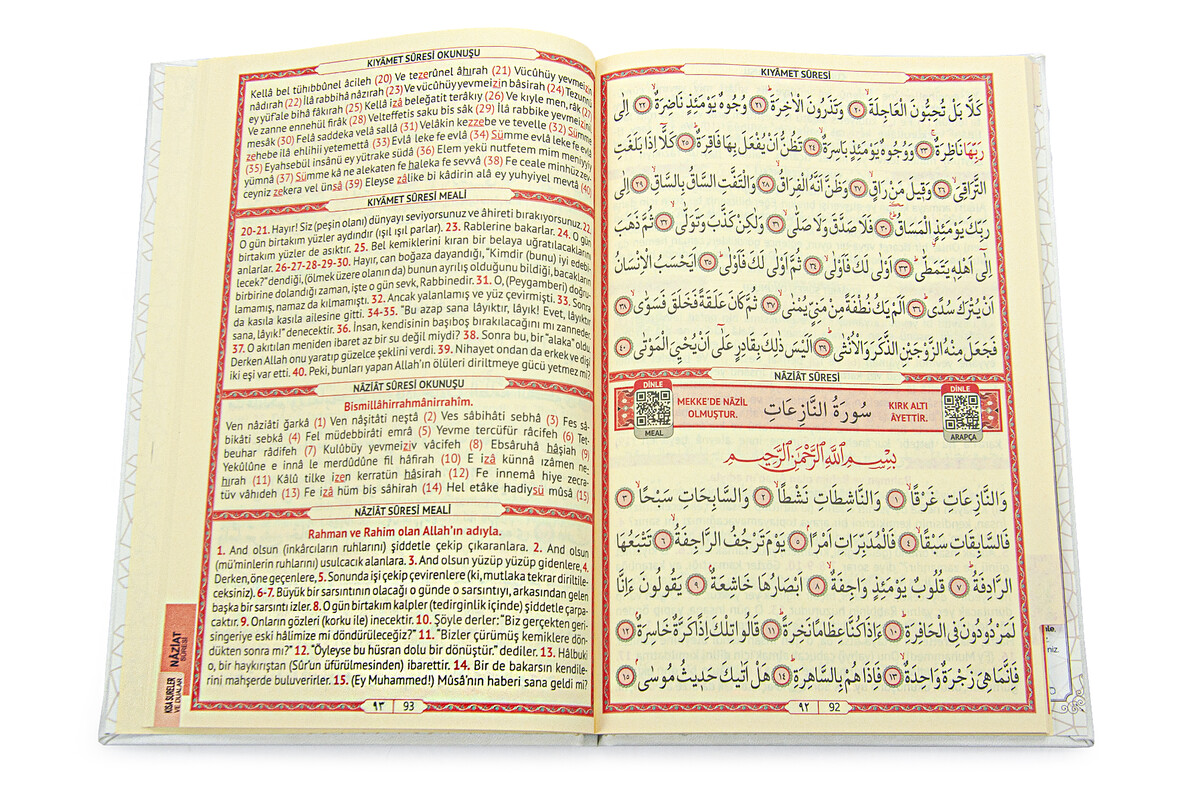 KIYÂMET SÛRESİ OKUNUŞU
Kellâ bel tühıbbûnel âcileh (20) Ve tezerûnel âhırah (21) Vücûhüy yevmeizin
nâdırah (22) İlâ rabbihâ nâzırah (23) Ve vücûhüy yevmeizin bâsirah (24) Tezunnü
ey yüf'ale bihâ fâkırah (25) Kellâ izâ beleğatit terâkıy (26) Ve kıyle men, râk (27)
Ve zanne ennehül firâk (28) Velteffetis saku bis sâk (29) İlâ rabbike yevmeizinil
mesâk (30) Felâ saddeka velâ sallâ (31) Velâkin kezzebe ve tevelle (32) Sümme
zehebe ilâ ehlihîi yetemettâ (33) Evlâ leke fe evlâ (34) Sümme evlâ leke fe evlâ
(35) Eyahsebül insânü ey yütrake südâ (36) Elem yekü nutfetem mim meniyyiy
yümnâ (37) Sümme kâ ne alekaten fe haleka fe sevvâ (38) Fe ceale minhüz zev-
ceyniz zekera vel ünsâ (39) Eleyse zâlike bi kâdirin alâ ey yuhyiyel mevtâ (40)
KIYÂMET SÛRESİ MEALİ
20-21. Hayır! Siz (peşin olanı) dünyayı seviyorsunuz ve âhireti bırakıyorsunuz. 22.
O gün birtakım yüzler aydındır (ışıl ışıl parlar). 23. Rablerine bakarlar. 24. O gün
birtakım yüzler de asıktır. 25. Bel kemiklerini kıran bir belaya uğratılacaklarını
anlarlar. 26-27-28-29-30. Hayır, can boğaza dayandığı, "Kimdir (bunu) iyi edebi-
lecek?" dendiği, (ölmek üzere olanın da) bunun ayrılış olduğunu bildiği, bacakların
birbirine dolandığı zaman, işte o gün sevk, Rabbinedir. 31. O, (Peygamberi) doğru-
lamamış, namaz da kılmamıştı. 32. Ancak yalanlamış ve yüz çevirmişti. 33. Sonra
da kasıla kasıla ailesine gitti. 34-35. "Bu azap sana lâyıktır, lâyık! Evet, lâyıktır
sana, lâyık!" denecektir. 36. İnsan, kendisinin başıboş bırakılacağını mı zanneder.
37. O akıtılan meniden ibaret az bir su değil miydi? 38. Sonra bu, bir "alaka" oldu.
Derken Allah onu yaratıp güzelce şeklini verdi. 39. Nihayet ondan da erkek ve dişi
iki eşi var etti. 40. Peki, bunları yapan Allah'ın ölüleri diriltmeye gücü yetmez mi?
NÂZİÂT SÛRESİ OKUNUŞU
Bismillâhirrahmânirrahîm.
Ven nâziâti ğarkâ (1) Ven nâşitâti neştâ (2) Ves sâbihâti sebhâ (3) Fes sâ-
bikâti sebkâ (4) Fel müdebbirâti emrâ (5) Yevme tercüfür râcifeh (6) Tet-
beuhar râdifeh (7) Kulûbüy yevmeiziv vâcifeh (8) Ebsâruhâ hâşiah (9)
Yekûlûne e innâ le merdûdûne fil hâfirah (10) E izâ künnâ ızâmen ne-
hırah (11) Kâlû tilke izen kerratün hâsirah (12) Fe innemâ hiye zecra-
tüv vâhıdeh (13) Fe izâ hüm bis sâhirah (14) Hel etâke hadiysü mûsâ (15)
NÂZİÂT SÛRESİ MEALİ
Rahman ve Rahim olan Allah'ın adıyla.
1. And olsun (inkârcıların ruhlarını) şiddetle çekip çıkaranlara. 2. And olsun
(mü'minlerin ruhlarını) usulcacık alanlara. 3. And olsun yüzüp yüzüp gidenlere, 4.
Derken, öne geçenlere, 5. Sonunda işi çekip çevirenlere (ki, mutlaka tekrar diriltile-
ceksiniz). 6-7. Büyük bir sarsıntının olacağı o günde o sarsıntıyı, arkasından gelen
başka bir sarsıntı izler. 8. O gün birtakım kalpler (tedirginlik içinde) şiddetle çarpa-
caktır. 9. Onların gözleri (korku ile) inecektir. 10. Şöyle derler: "Biz gerçekten geri-
singeriye eski hâlimize mi döndürüleceğiz?" 11. "Bizler çürümüş kemiklere dön-
dükten sonra mı?" 12. "Öyleyse bu hüsran dolu bir dönüştür." dediler. 13. Hâlbuki
o, bir haykırıştan (Sûr'un üfürülmesinden) ibarettir. 14. Bir de bakarsın kendile-
rini mahşerde buluverirler. 15. (Ey Muhammed!) Mûsâ'nın haberi sana geldi mi?
٩٣ 93
NÂZİÂT
SÛRESİ
KISA SURELER
VE DUALAR
KIYÂMET SÛRESİ
كَلَّا بَلْ تُحِبُّونَ الْعَاجِلَةَۙ ٢٠ وَتَذَرُونَ الْاٰخِرَةَۜ ٢١ وُجُوهٌ يَوْمَئِذٍ نَاضِرَةٌۙ ٢٢ اِلٰى
رَبِّهَا نَاظِرَةٌۚ ٢٣ وَوُجُوهٌ يَوْمَئِذٍ بَاسِرَةٌۙ ٢٤ تَظُنُّ اَنْ يُفْعَلَ بِهَا فَاقِرَةٌۜ ٢٥ كَلَّٓا اِذَا بَلَغَتِ
التَّرَاقِيَۙ ٢٦ وَقِيلَ مَنْ رَاقٍۙ ٢٧ وَظَنَّ اَنَّهُ الْفِرَاقُۙ ٢٨ وَالْتَفَّتِ السَّاقُ بِالسَّاقِۙ ٢٩ اِلٰى
رَبِّكَ يَوْمَئِذٍ الْمَسَاقُۜ ٣٠ فَلَا صَدَّقَ وَلَا صَلّٰىۙ ٣١ وَلٰكِنْ كَذَّبَ وَتَوَلّٰىۙ ٣٢ ثُمَّ ذَهَبَ
اِلٰٓى اَهْلِهٖ يَتَمَطّٰىۜ ٣٣ اَوْلٰى لَكَ فَاَوْلٰىۙ ٣٤ ثُمَّ اَوْلٰى لَكَ فَاَوْلٰىۜ ٣٥ اَيَحْسَبُ الْاِنْسَانُ
اَنْ يُتْرَكَ سُدًىۜ ٣٦ اَلَمْ يَكُ نُطْفَةً مِنْ مَنِيٍّ يُمْنٰىۙ ٣٧ ثُمَّ كَانَ عَلَقَةً فَخَلَقَ فَسَوّٰىۙ ٣٨
فَجَعَلَ مِنْهُ الزَّوْجَيْنِ الذَّكَرَ وَالْاُنْثٰىۜ ٣٩ اَلَيْسَ ذٰلِكَ بِقَادِرٍ عَلٰٓى اَنْ يُحْيِيَ الْمَوْتٰى ٤٠
NÂZİÂT SÛRESİ
DİNLE
MEAL
MEKKE'DE NÂZİL
OLMUŞTUR.
سُورَةُ النَّازِعَاتِ
KIRK ALTI
ÂYETTİR.
DİNLE
ARAPÇA
بِسْمِ اللّٰهِ الرَّحْمٰنِ الرَّحِيمِ
وَالنَّازِعَاتِ غَرْقًاۙ ١ وَالنَّاشِطَاتِ نَشْطًاۙ ٢ وَالسَّابِحَاتِ سَبْحًاۙ ٣
فَالسَّابِقَاتِ سَبْقًاۙ ٤ فَالْمُدَبِّرَاتِ اَمْرًاۢ ٥ يَوْمَ تَرْجُفُ الرَّاجِفَةُۙ ٦ تَتْبَعُهَا
الرَّادِفَةُۜ ٧ قُلُوبٌ يَوْمَئِذٍ وَاجِفَةٌۙ ٨ اَبْصَارُهَا خَاشِعَةٌۢ ٩ يَقُولُونَ ءَاِنَّا
لَمَرْدُودُونَ فِي الْحَافِرَةِۜ ١٠ ءَاِذَا كُنَّا عِظَامًا نَخِرَةًۜ ١١ قَالُوا تِلْكَ اِذًا كَرَّةٌ خَاسِرَةٌۢ ١٢
فَاِنَّمَا هِيَ زَجْرَةٌ وَاحِدَةٌۙ ١٣ فَاِذَا هُمْ بِالسَّاهِرَةِۜ ١٤ هَلْ اَتٰيكَ حَدِيثُ مُوسٰىۢ ١٥
٩٢ 92